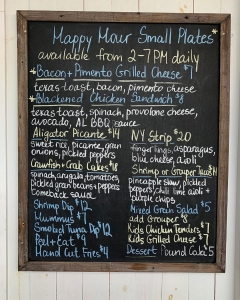 Happy Hour Small Plates
available from 2-7PM daily
*Bacon+Pimento Grilled Cheese $7
texas toast, bacon, pimento cheese
*Blackened Chicken Sandwich $8
texas toast, spinach, provolone cheese,
avocado, AL BBQ sauce
Alligator Picante $14
sweet rice, picante, grain
onions, pickled peppers
Crawfish+Crab Cakes $18
spinach, arugula, tomatoes,
pickled green beans+peppers
comeback sauce
Shrimp Dip $12
Hummus $7
Smoked Tuna Dip $12
Peel+Eat $4
Hand Cut Fries $4
NY Strip $20
fingerlings, asparagus,
blue cheese, aioli
Shrimp or Grouper Tacos $14
pineapple slaw, pickled
peppers, chili lime aioli +
purple chips
Mixed Grain Salad $5
add Grouper $8
Kids Chicken Tenders $7
Kids Grilled Cheese $7
Dessert Pound Cake $5